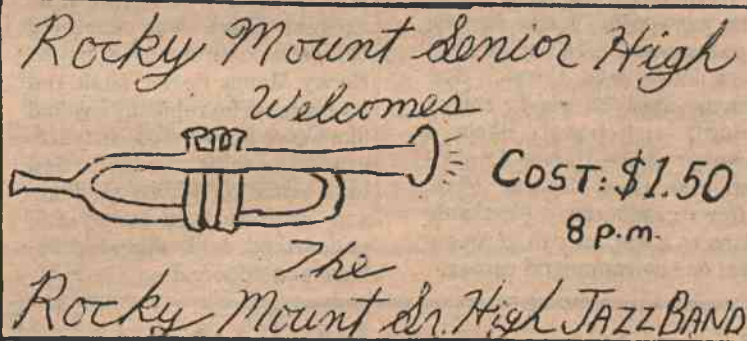 Rocky Mount Senior High
Welcomes
COST: $1.50
8 p.m.
The
Rocky Mount Sr. High JAZZ BAND